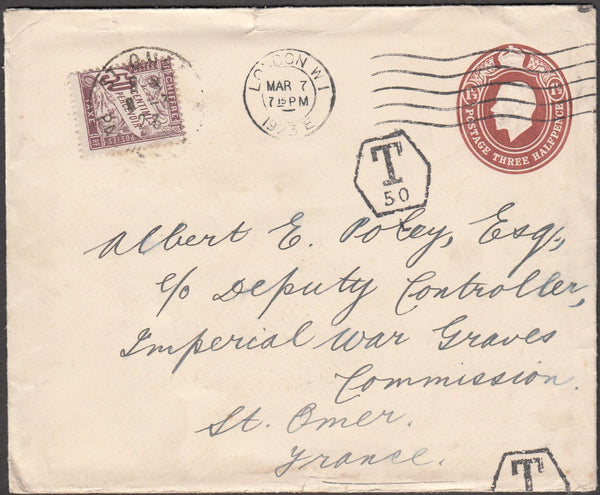 LONDON W1
MAR 7
7 15 PM
1923 E
POSTAGE THREE HALFPENCE
T
50
Albert E. Poley, Esq,
c/o Deputy Controller,
Imperial War Graves
Commission.
St. Omer.
France.
T